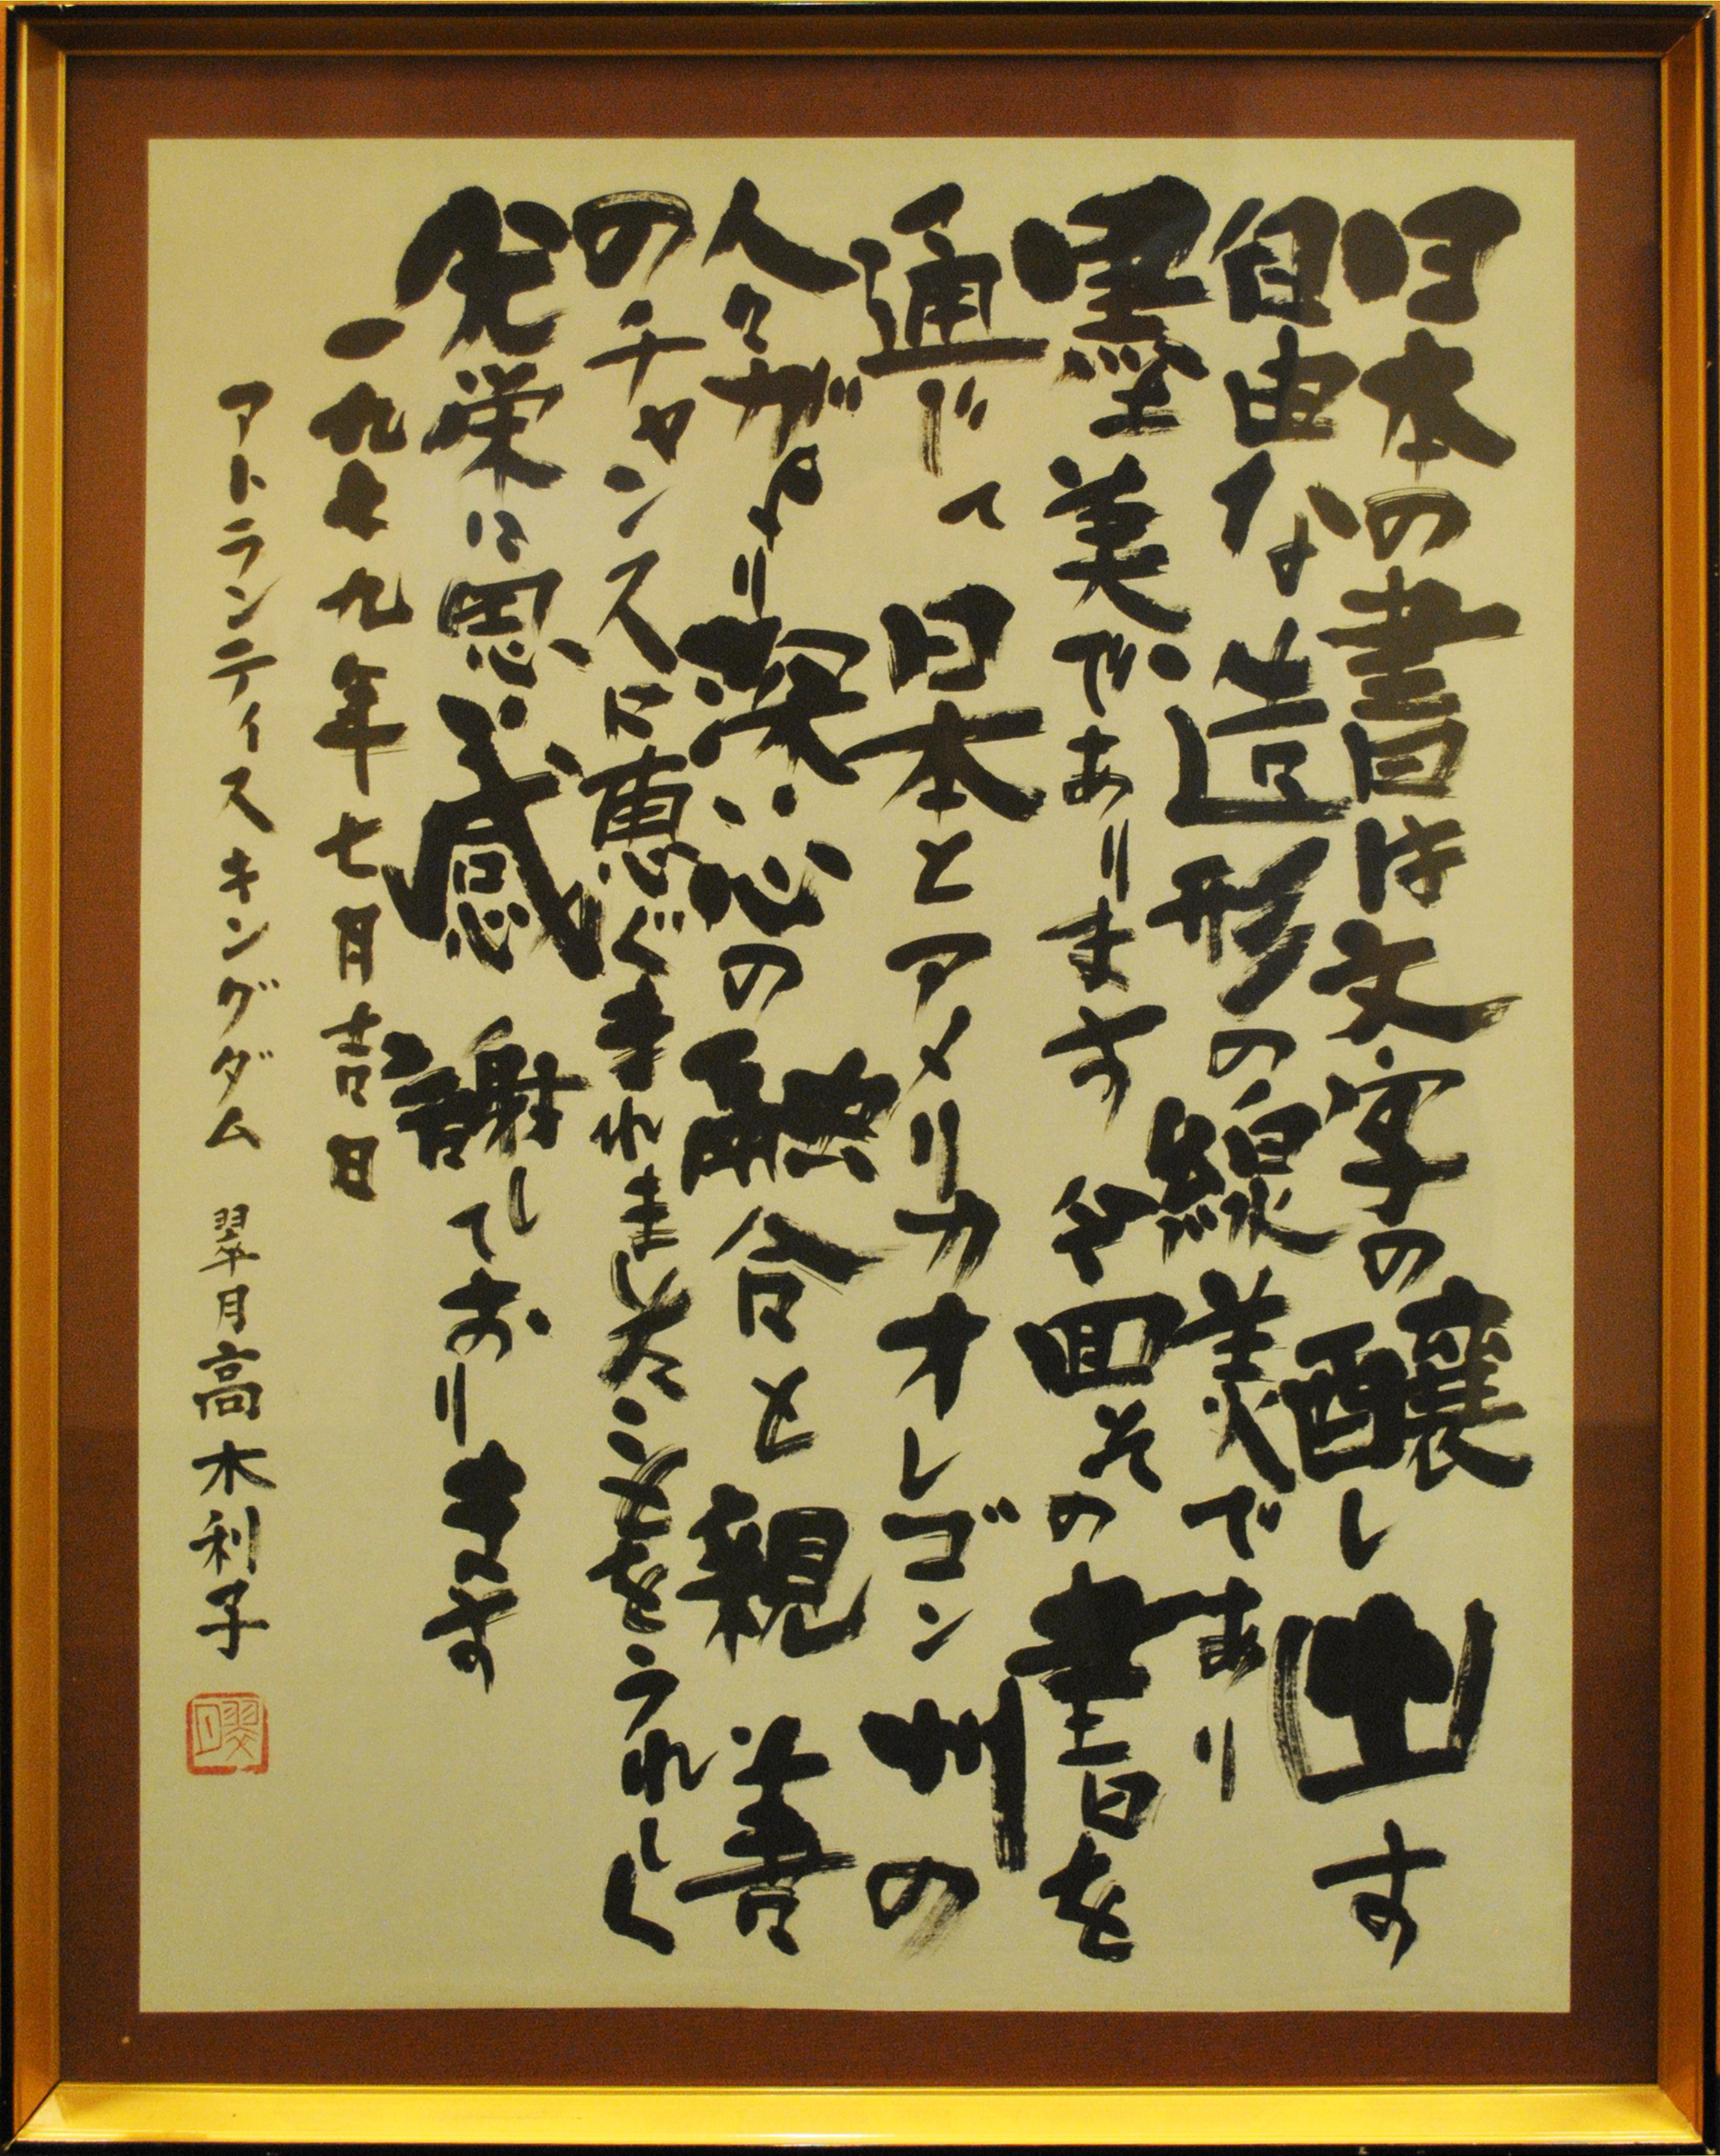 日本の書は文字の醸し出す
自由な造形の線美であり
墨美であります 今回その書を
通じて 日本とアメリカオレゴン州の
人々がより深い心の融合と親善
のチャンスに恵ぐまれましたことをうれしく
光栄に思い感謝しております
一九七九年七月吉日
アトランティスキングダム 翠月高木利子
翠月